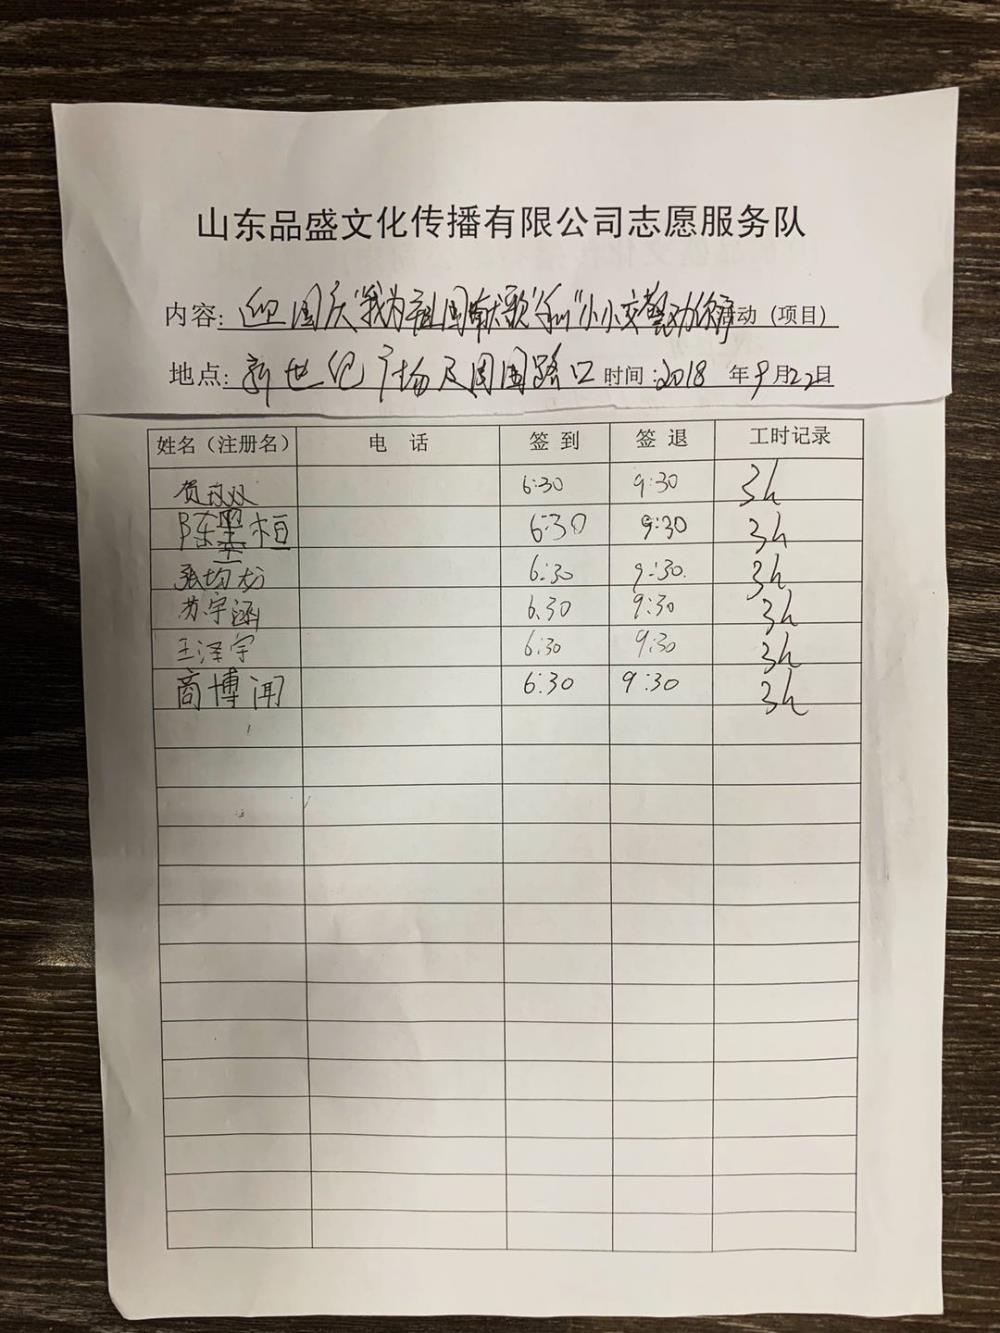 山东品盛文化传播有限公司志愿服务队
内容：迎国庆"我为祖国献歌"和"小小交警 活动（项目）
地点：新世纪广场及周围路口 时间：2018年9月22日
姓名（注册名） 电 话 签 到 签 退 工时记录
贺 双 6:30 9:30 3h
陈墨桓 6:30 9:30 3h
张均 6:30 9:30. 3h
苏宇涵 6.30 9:30 3h
王泽宇 6:30 9:30 3h
商博闻 6:30 9:30 3h